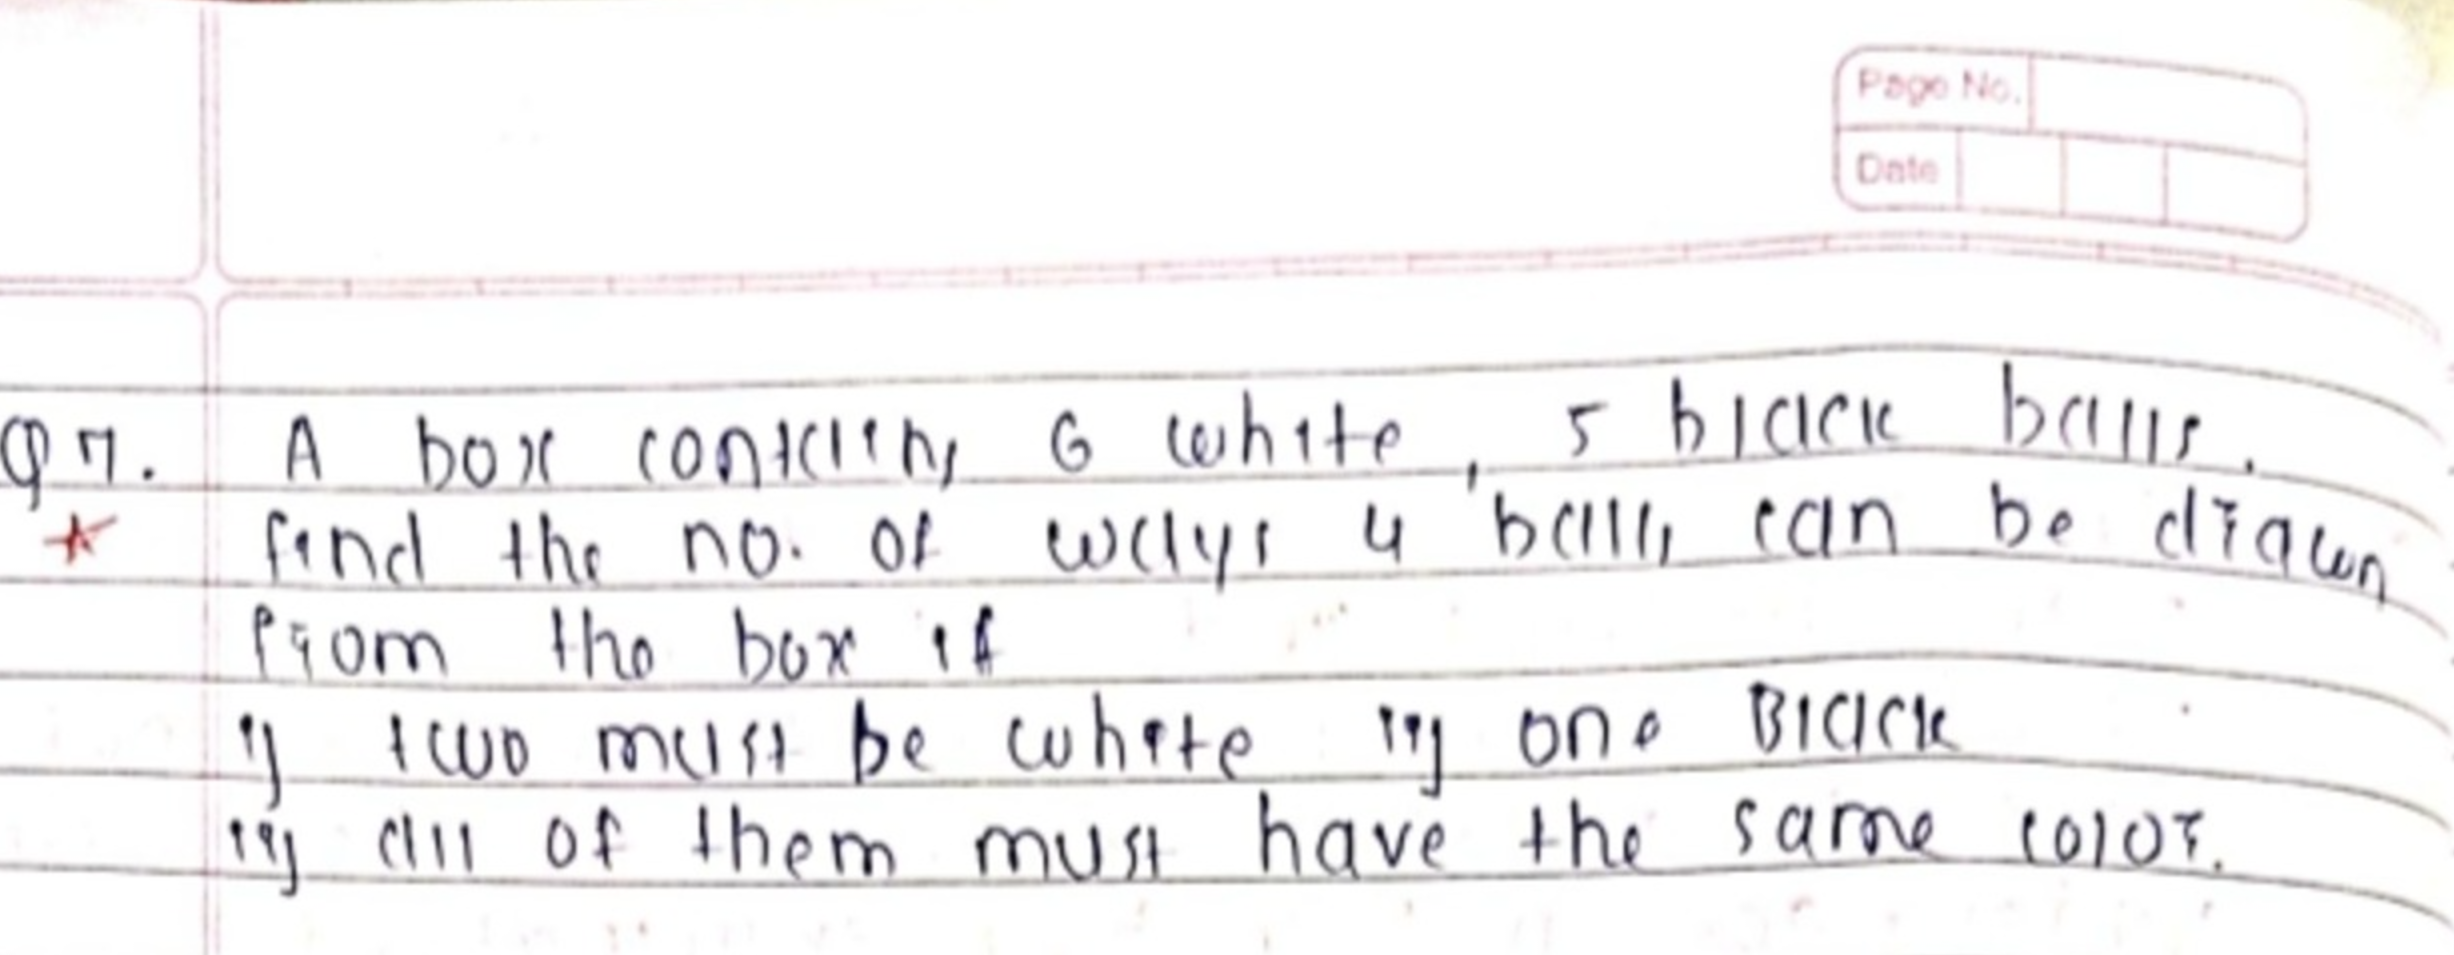 Page No.
Date
Q7. A box contains 6 white, 5 black balls.
find the no. of ways 4 balls can be drawn
from the box if
i) two must be white ii) one Black
iii) all of them must have the same color.